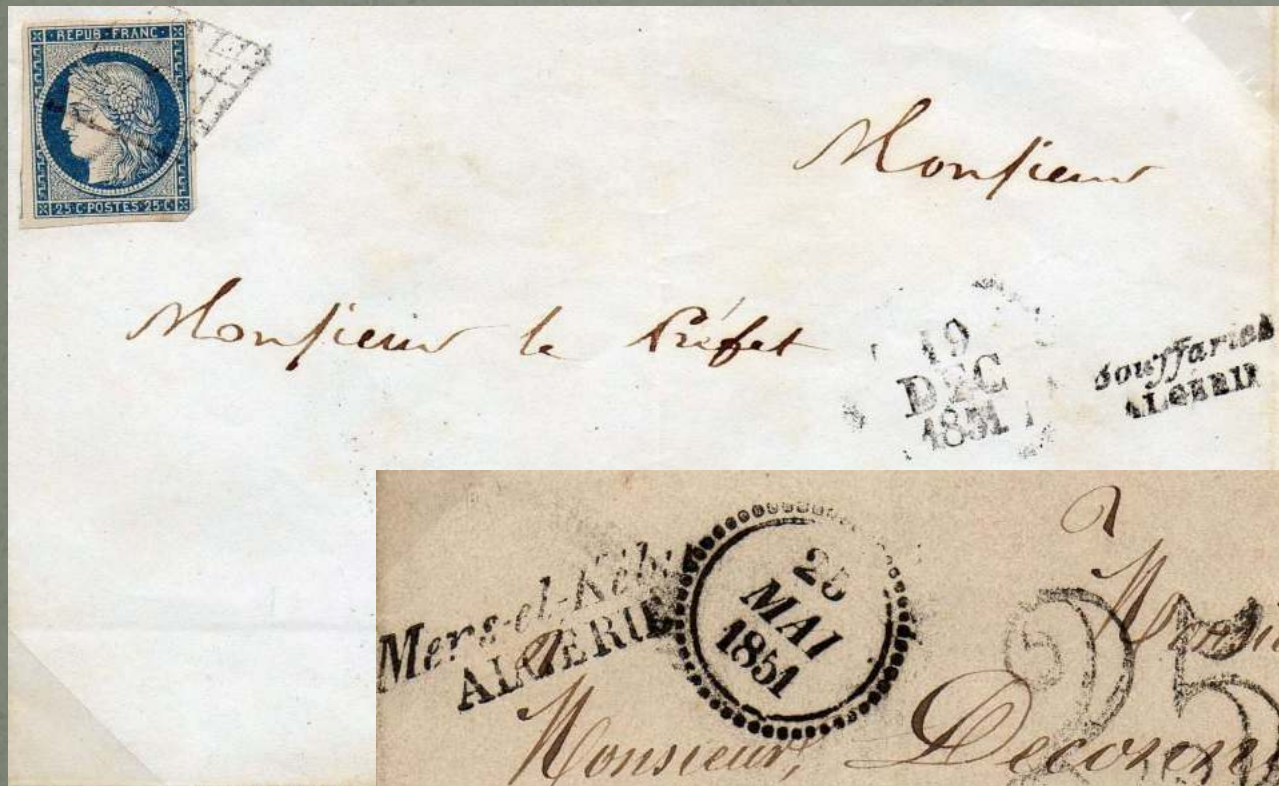 REPUB · FRANC ·
25 · C · POSTES · 25 · C
Monsieur
Monsieur le Préfet
19
DEC
1851
Souffaries
ALGÉRIE
Mers-el-Kébi
ALGÉRIE
25
MAI
1851
25
à
Monsieur,